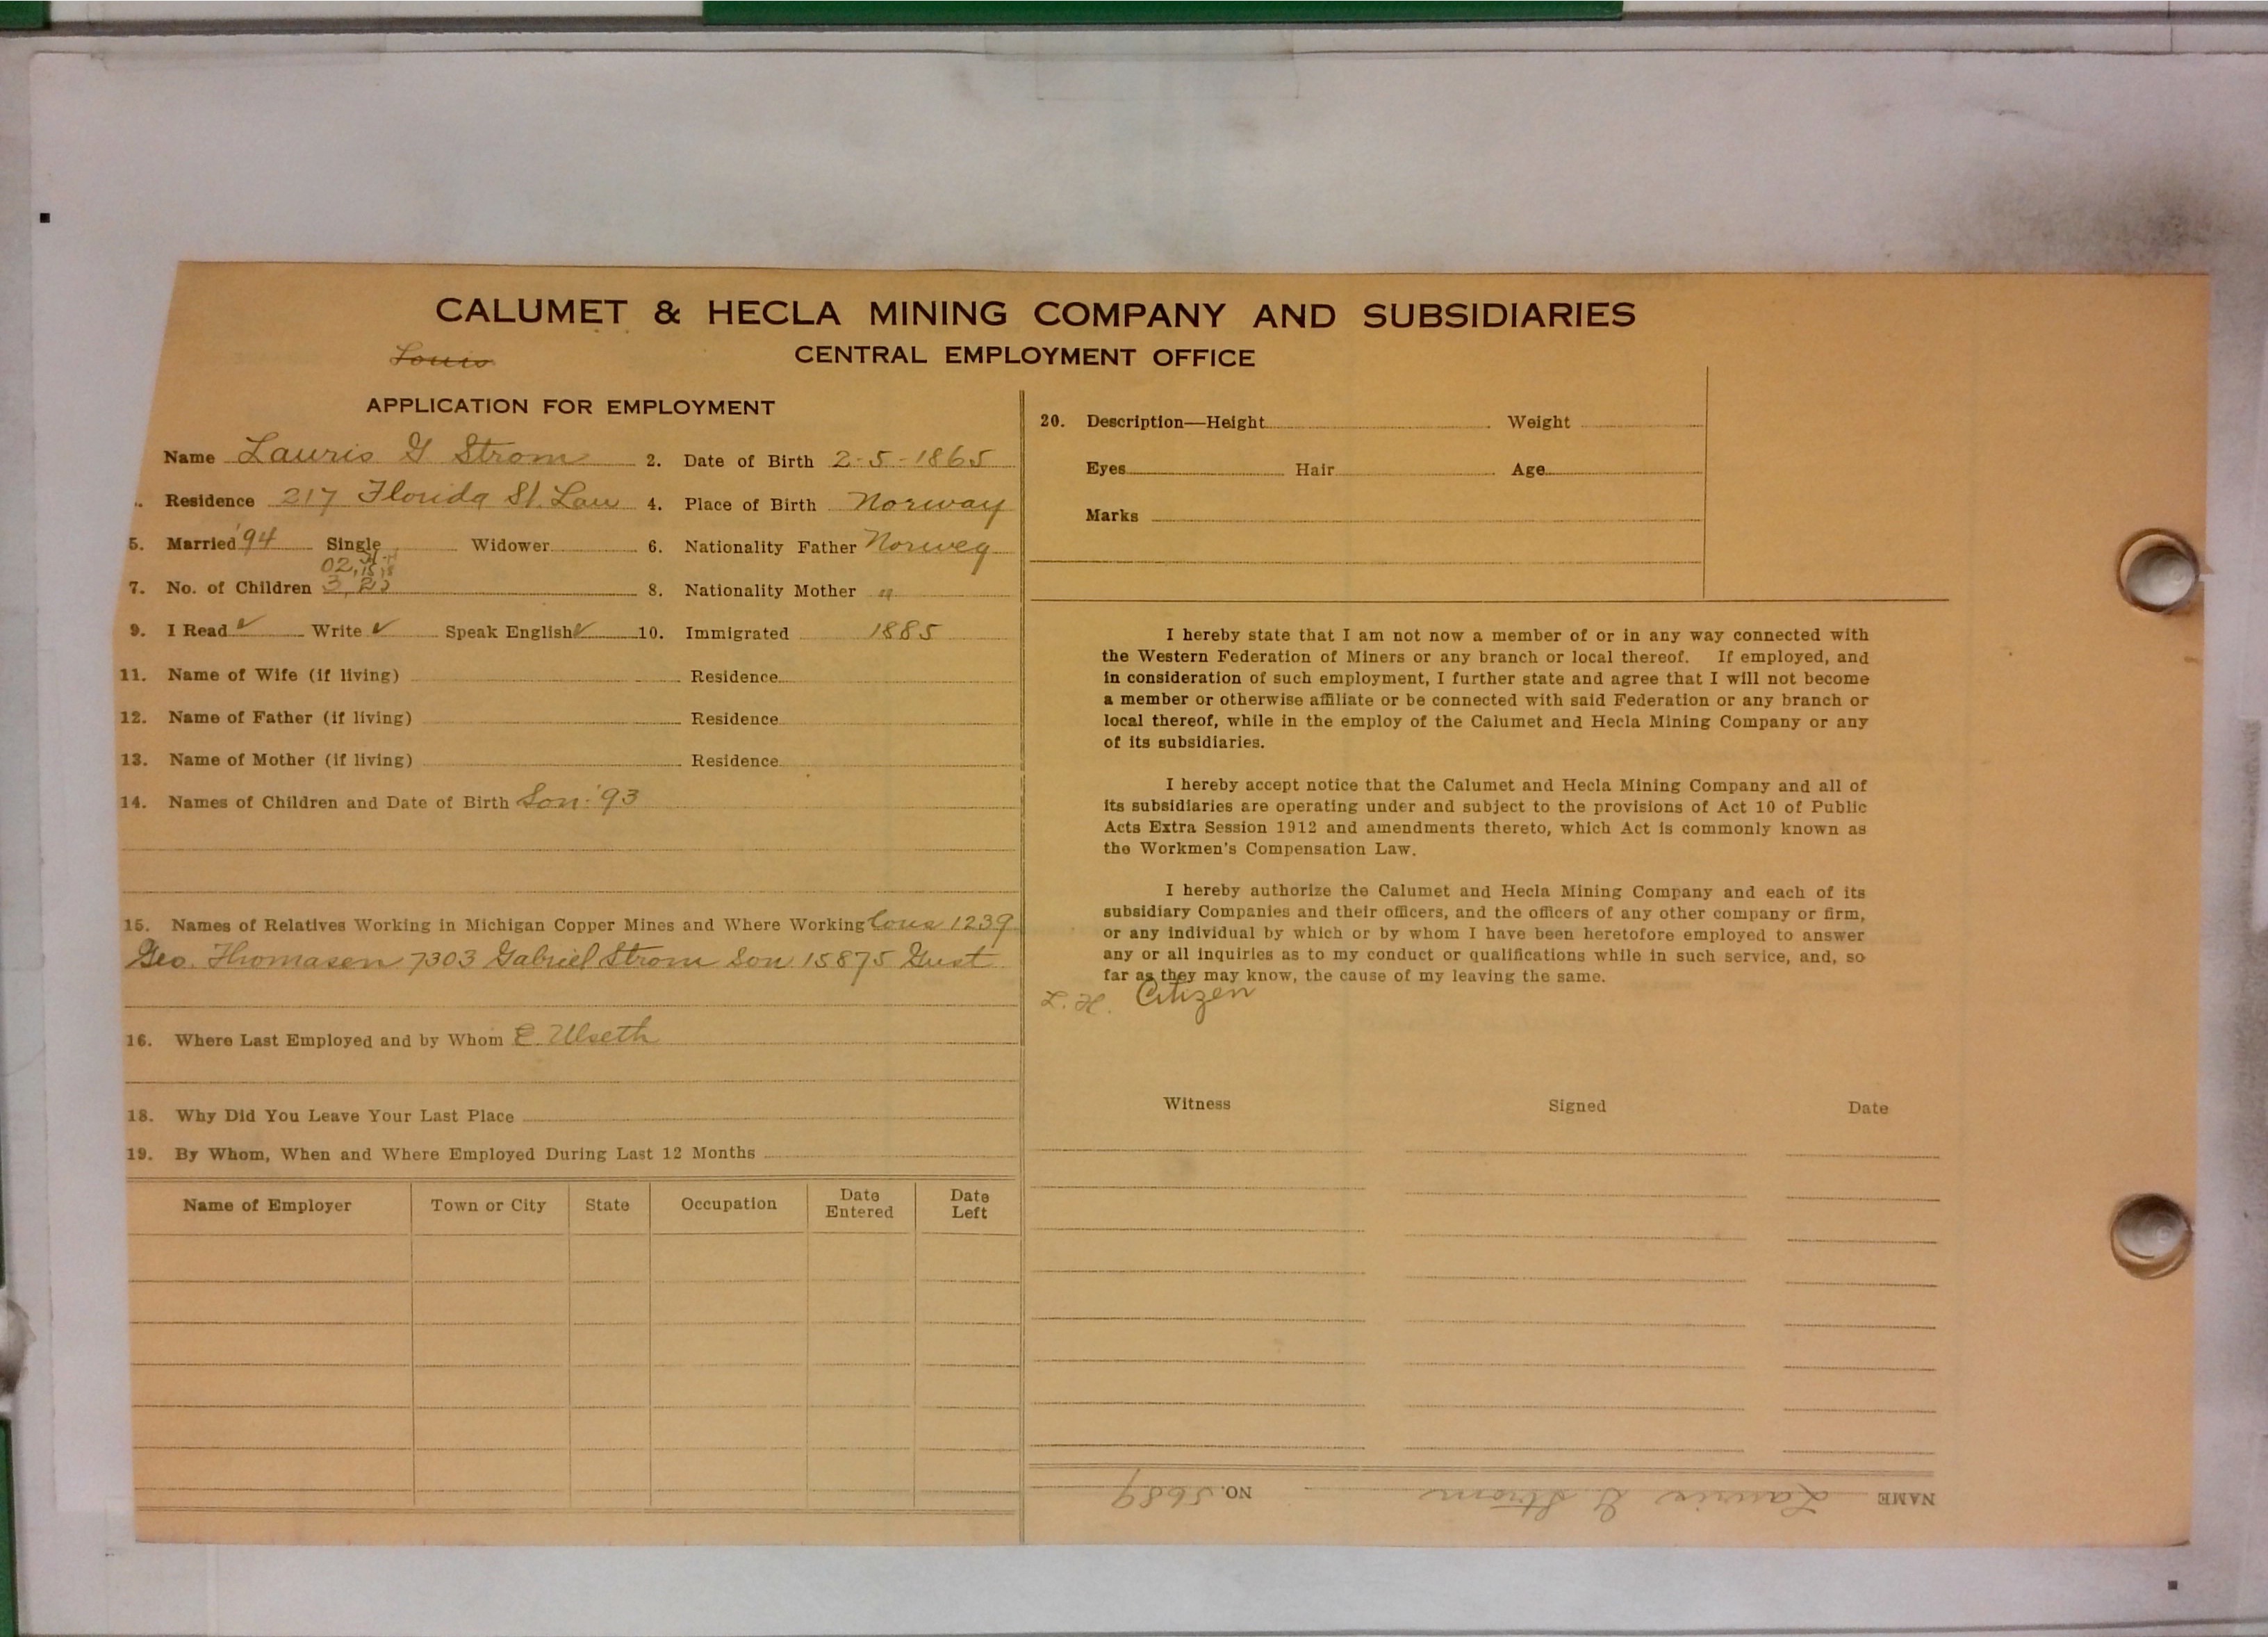 CALUMET & HECLA MINING COMPANY AND SUBSIDIARIES
Louis
CENTRAL EMPLOYMENT OFFICE
APPLICATION FOR EMPLOYMENT
Name Lauris G Strom 2. Date of Birth 2-5-1865
Residence 217 Florida St. Lau 4. Place of Birth Norway
5. Married '94 Single Widower 6. Nationality Father Norweg
02, 15,
7. No. of Children 3, 2) 8. Nationality Mother "
9. I Read ✓ Write ✓ Speak English ✓ 10. Immigrated 1885
11. Name of Wife (if living) Residence
12. Name of Father (if living) Residence
13. Name of Mother (if living) Residence
14. Names of Children and Date of Birth Son '93
15. Names of Relatives Working in Michigan Copper Mines and Where Working Cous 1239
Geo. Thomasen 7303 Gabriel Strom Son 15875 Gust
16. Where Last Employed and by Whom E. Ulseth
18. Why Did You Leave Your Last Place
19. By Whom, When and Where Employed During Last 12 Months
Name of Employer Town or City State Occupation Date Entered Date Left
20. Description—Height Weight
Eyes Hair Age
Marks
I hereby state that I am not now a member of or in any way connected with
the Western Federation of Miners or any branch or local thereof. If employed, and
in consideration of such employment, I further state and agree that I will not become
a member or otherwise affiliate or be connected with said Federation or any branch or
local thereof, while in the employ of the Calumet and Hecla Mining Company or any
of its subsidiaries.
I hereby accept notice that the Calumet and Hecla Mining Company and all of
its subsidiaries are operating under and subject to the provisions of Act 10 of Public
Acts Extra Session 1912 and amendments thereto, which Act is commonly known as
the Workmen's Compensation Law.
I hereby authorize the Calumet and Hecla Mining Company and each of its
subsidiary Companies and their officers, and the officers of any other company or firm,
or any individual by which or by whom I have been heretofore employed to answer
any or all inquiries as to my conduct or qualifications while in such service, and, so
far as they may know, the cause of my leaving the same.
L. H. Citizen
Witness Signed Date
NAME Lauris G Strom NO. 5689